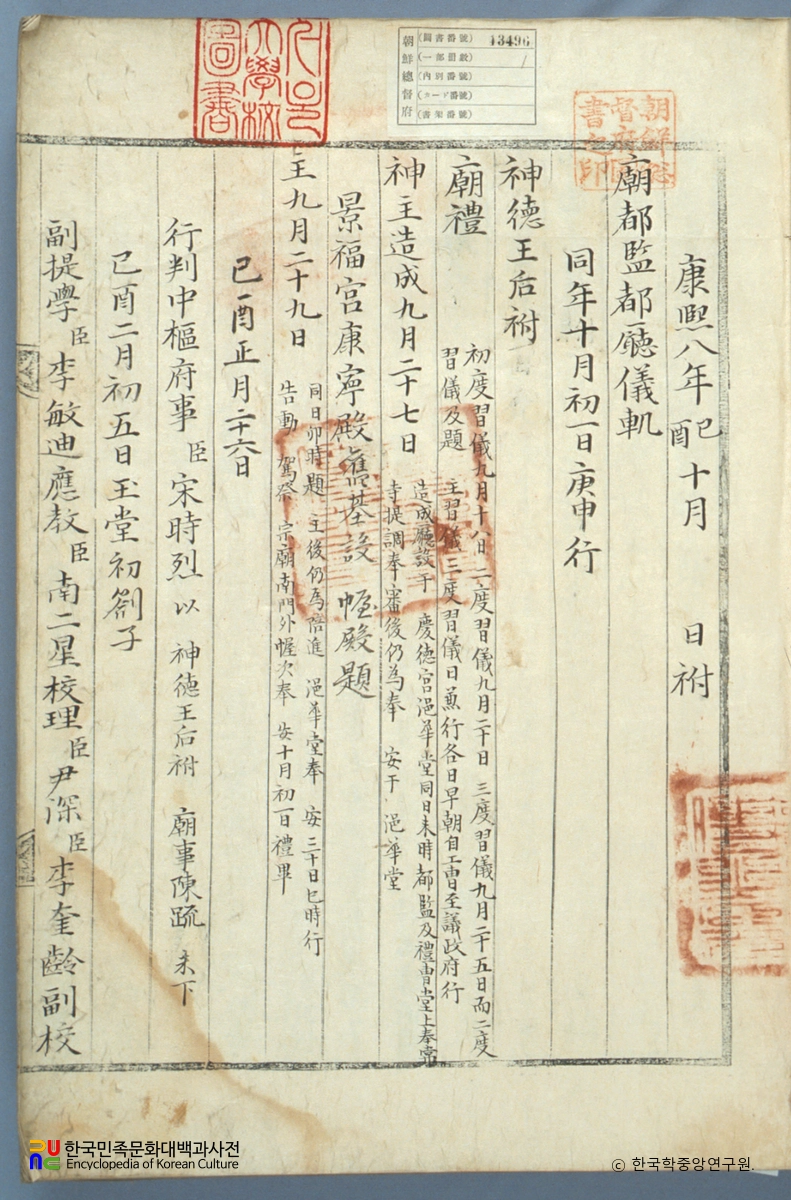 康熙八年己酉十月 日祔
廟都監都廳儀軌
同年十月初一日庚申行
神德王后祔
廟禮 初度習儀九月十八日 二度習儀九月二十日 三度習儀九月二十五日而二度
習儀及題 主習儀 三度習儀日兼行各日早朝自工曹至議政府行
神主造成九月二十七日 造成廳設于 慶德宮浥華堂同日未時都監及禮曹堂上奉常
寺提調奉審後仍爲奉 安于 浥華堂
景福宮康寧殿舊基設 幄殿題
主九月二十九日 同日卯時題 主後仍爲陪進 浥華堂奉 安三十日巳時行
告動 駕祭 宗廟南門外幄次奉 安十月初一日禮畢
己酉正月二十六日
行判中樞府事臣宋時烈以 神德王后祔 廟事陳疏 未下
己酉二月初五日玉堂初箚子
副提學臣李敏迪應教臣南二星校理臣尹深臣李奎齡副校
朝鮮總督府
(圖書番號)
13496
(一部冊數)
1
(內別番號)
(カード番號)
(書架番號)
大學校
圖書
朝鮮總
督府圖
書之印
한국민족문화대백과사전
Encyclopedia of Korean Culture
ⓒ 한국학중앙연구원.